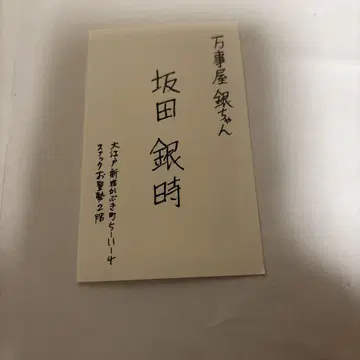 万事屋 銀ちゃん
坂田 銀時
大江戸新宿かぶき町5-11-4
スナックお登勢2階